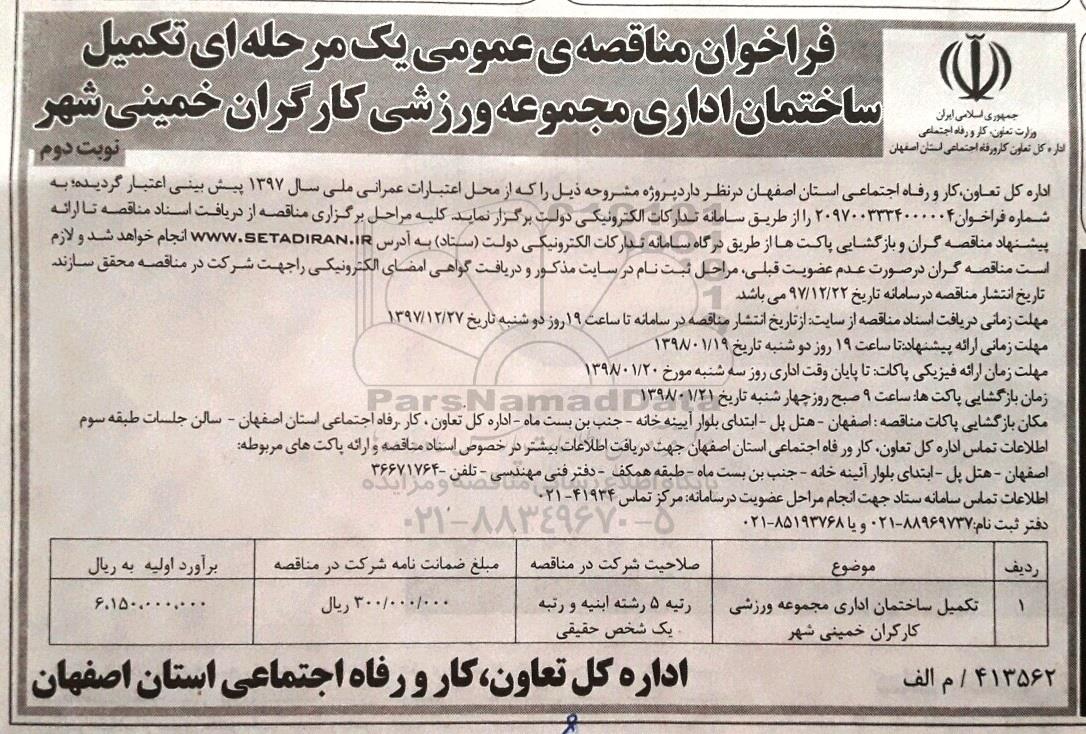 فراخوان مناقصه ی عمومی یک مرحله ای تکمیل
ساختمان اداری مجموعه ورزشی کارگران خمینی شهر
نوبت دوم
جمهوری اسلامی ایران
وزارت تعاون، کار و رفاه اجتماعی
اداره کل تعاون کار و رفاه اجتماعی استان اصفهان
اداره کل تعاون،کار و رفاه اجتماعی استان اصفهان درنظر دارد پروژه مشروحه ذیل را که از محل اعتبارات عمرانی ملی سال ۱۳۹۷ پیش بینی اعتبار گردیده؛ به
شماره فراخوان ۲۰۹۷۰۰۳۳۳۴۰۰۰۰۰۴ را از طریق سامانه تدارکات الکترونیکی دولت برگزار نماید. کلیه مراحل برگزاری مناقصه از دریافت اسناد مناقصه تا ارائه
پیشنهاد مناقصه گران و بازگشایی پاکت ها از طریق درگاه سامانه تدارکات الکترونیکی دولت (ستاد) به آدرس WWW.SETADIRAN.IR انجام خواهد شد و لازم
است مناقصه گران درصورت عدم عضویت قبلی، مراحل ثبت نام در سایت مذکور و دریافت گواهی امضای الکترونیکی راجهت شرکت در مناقصه محقق سازند.
تاریخ انتشار مناقصه درسامانه تاریخ ۹۷/۱۲/۲۲ می باشد.
مهلت زمانی دریافت اسناد مناقصه از سایت: ازتاریخ انتشار مناقصه در سامانه تا ساعت ۱۹ روز دو شنبه تاریخ ۱۳۹۷/۱۲/۲۷
مهلت زمانی ارائه پیشنهاد:تا ساعت ۱۹ روز دو شنبه تاریخ ۱۳۹۸/۰۱/۱۹
مهلت زمان ارائه فیزیکی پاکات: تا پایان وقت اداری روز سه شنبه مورخ ۱۳۹۸/۰۱/۲۰
زمان بازگشایی پاکت ها: ساعت ۹ صبح روز چهار شنبه تاریخ ۱۳۹۸/۰۱/۲۱
ParsNamadData
مکان بازگشایی پاکات مناقصه : اصفهان - هتل پل - ابتدای بلوار آیینه خانه - جنب بن بست ماه - اداره کل تعاون ، کار .رفاه اجتماعی استان اصفهان - سالن جلسات طبقه سوم
اطلاعات تماس اداره کل تعاون، کار ور فاه اجتماعی استان اصفهان جهت دریافت اطلاعات بیشتر در خصوص اسناد مناقصه و ارائه پاکت های مربوطه:
اصفهان - هتل پل - ابتدای بلوار آئینه خانه - جنب بن بست ماه - طبقه همکف - دفتر فنی مهندسی - تلفن -۳۶۶۷۱۷۶۴
پایگاه اطلاع رسانی مناقصه و مزایده
اطلاعات تماس سامانه ستاد جهت انجام مراحل عضویت درسامانه: مرکز تماس ۴۱۹۳۴-۰۲۱
۰۲۱-۸۸۳۴۹۶۷۰-۵
دفتر ثبت نام:۸۸۹۶۹۷۳۷-۰۲۱ و یا ۸۵۱۹۳۷۶۸-۰۲۱
ردیف موضوع صلاحیت شرکت در مناقصه مبلغ ضمانت نامه شرکت در مناقصه برآورد اولیه به ریال
۱ تکمیل ساختمان اداری مجموعه ورزشی رتبه ۵ رشته ابنیه و رتبه ۳۰۰/۰۰۰/۰۰۰ ریال ۶،۱۵۰،۰۰۰،۰۰۰
کارکران خمینی شهر یک شخص حقیقی
۴۱۳۵۶۲ / م الف
اداره کل تعاون،کار و رفاه اجتماعی استان اصفهان